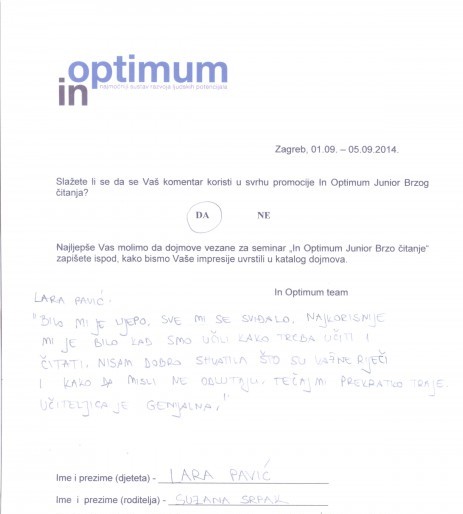 in optimum
najmoćniji sustav razvoja ljudskih potencijala
Zagreb, 01.09. – 05.09.2014.
Slažete li se da se Vaš komentar koristi u svrhu promocije In Optimum Junior Brzog
čitanja?
DA NE
Najljepše Vas molimo da dojmove vezane za seminar „In Optimum Junior Brzo čitanje“
zapišete ispod, kako bismo Vaše impresije uvrstili u katalog dojmova.
In Optimum team
LARA PAVIĆ:
"BILO MI JE LIJEPO, SVE MI SE SVIĐALO, NAJKORISNIJE
MI JE BILO KAD SMO UČILI KAKO TREBA UČITI I
ČITATI. NISAM DOBRO SHVATILA ŠTO SU VAŽNE RIJEČI
I KAKO DA MISLI NE ODLUTAJU. TEČAJ MI PREKRATKO TRAJE.
UČITELJICA JE GENIJALNA."
Ime i prezime (djeteta) - LARA PAVIĆ
Ime i prezime (roditelja) - SUZANA